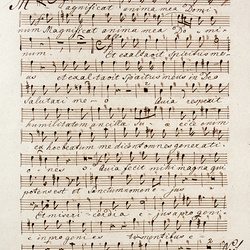 Magnificat anima mea Domi-
num Magnificat anima mea Domi-
num Et exaltavit Spiritus me
us et exaltavit Spiritus meus in Deo
salutari me-o Quia respexit
humilitatem ancillæ Suæ ecce enim
ex hoc beatam me dicent omnes generati
o-nes Quia fecit mihi magna qui
potens est et Sanctum nomen ejus
Et misericordia ejus a progeni-
e in progenies timentibus